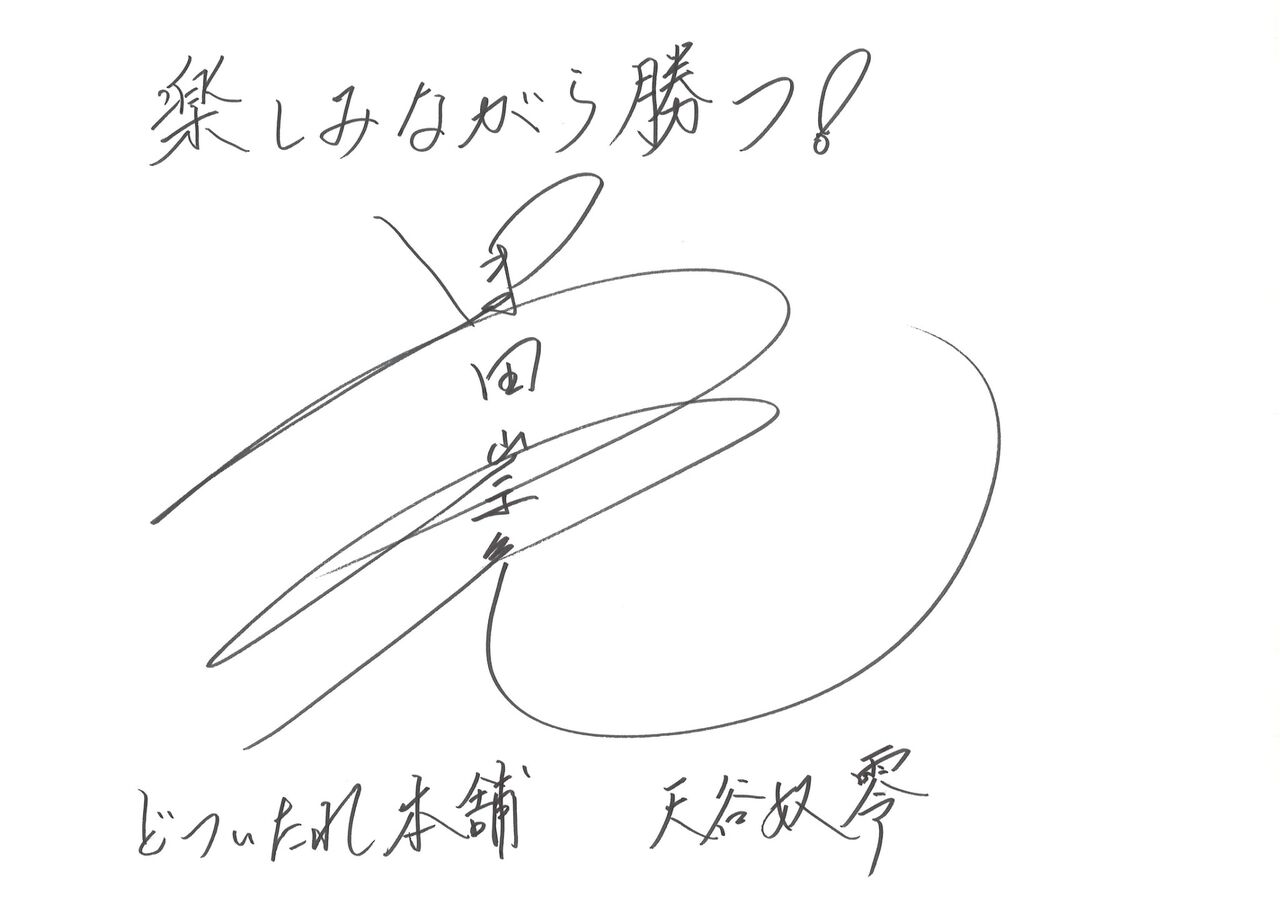 楽しみながら勝つ!
黒田崇矢
どついたれ本舗 天谷奴零